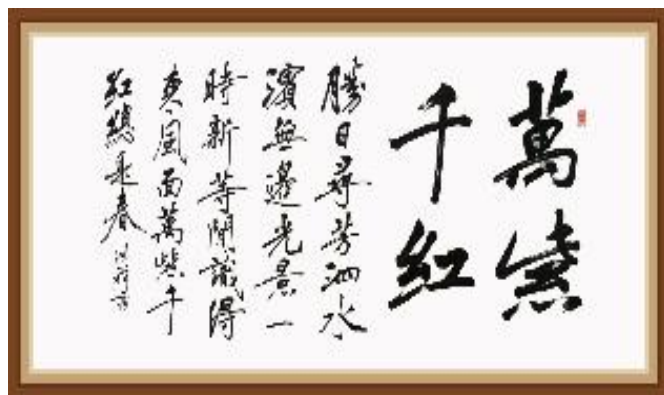 萬紫
千紅
勝日尋芳泗水
濱無邊光景一
時新等閒識得
東風面萬紫千
紅總是春